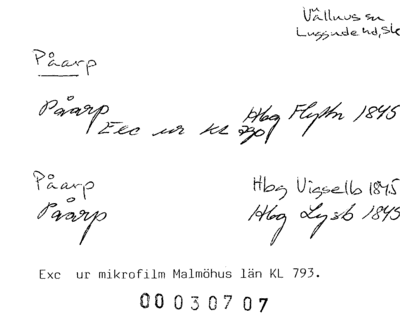 Vällufs sn
Luggude hd, Sk
Påarp
Påarp Hbg Flyttn 1845
Exc ur KL 790
Påarp Hbg Vigselb 1845
Påarp Hbg Lysb 1845
Exc ur mikrofilm Malmöhus län KL 793.
00030707